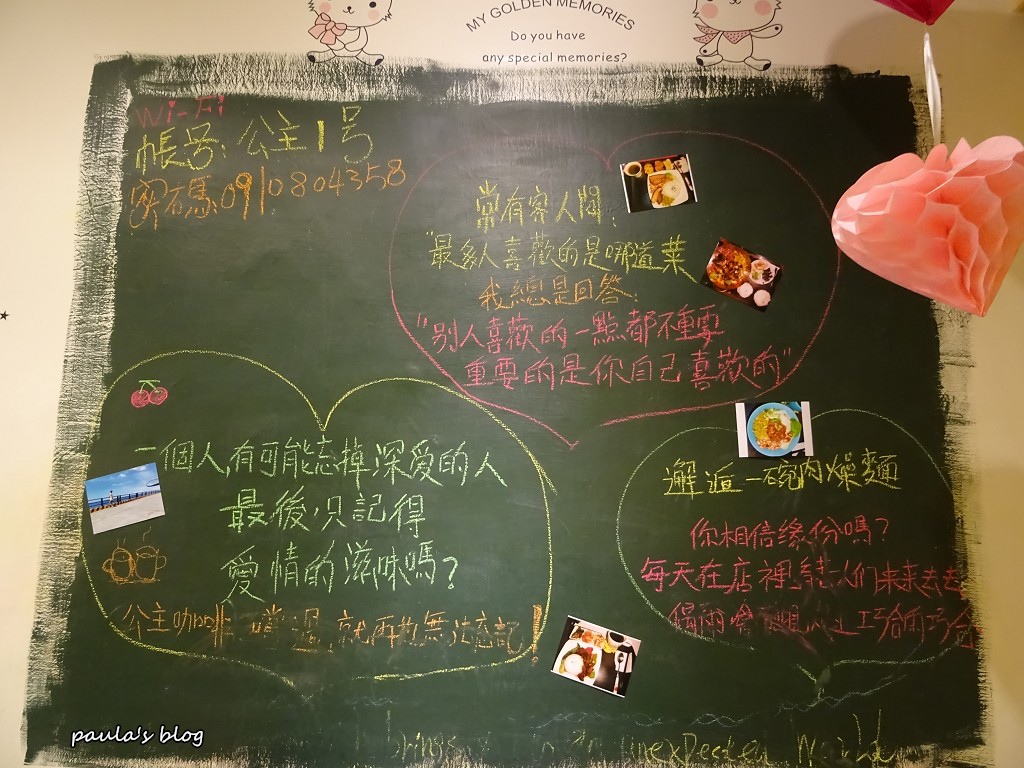 MY GOLDEN MEMORIES
Do you have
any special memories?
Wi-Fi
帳号:公主1号
密碼:0910804358
當有客人問:
"最多人喜歡的是哪道菜
我總是回答:
"別人喜歡的一點都不重要
重要的是你自己喜歡的"
一個人,有可能忘掉深愛的人
最後,只記得
愛情的滋味嗎?
公主咖啡 嚐過,就再也無法忘記!
邂逅一碗肉燥麵
你相信缘份嗎?
每天在店裡,人们来来去去
偶爾會 巧合的巧合
paula's blog